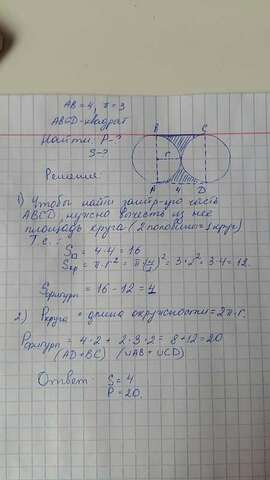 AB = 4, π = 3
ABCD - квадрат
Найти: P-?
S-?
B C
r
A 4 D
Решение
1) Чтобы найти заштр-ую часть
ABCD, нужно вычесть из нее
площадь круга (2 половины = 1 круг)
Т.е.:
S□ = 4·4 = 16
Sкр = π·r² = π(4/2)² = 3·2² = 3·4 = 12.
Sфигуры = 16 - 12 = 4
2) Pкруга = длина окружности = 2π·r.
Pфигуры = 4·2 + 2·3·2 = 8+12 = 20
(AD+BC) (∪AB + ∪CD)
Ответ: S = 4
P = 20.